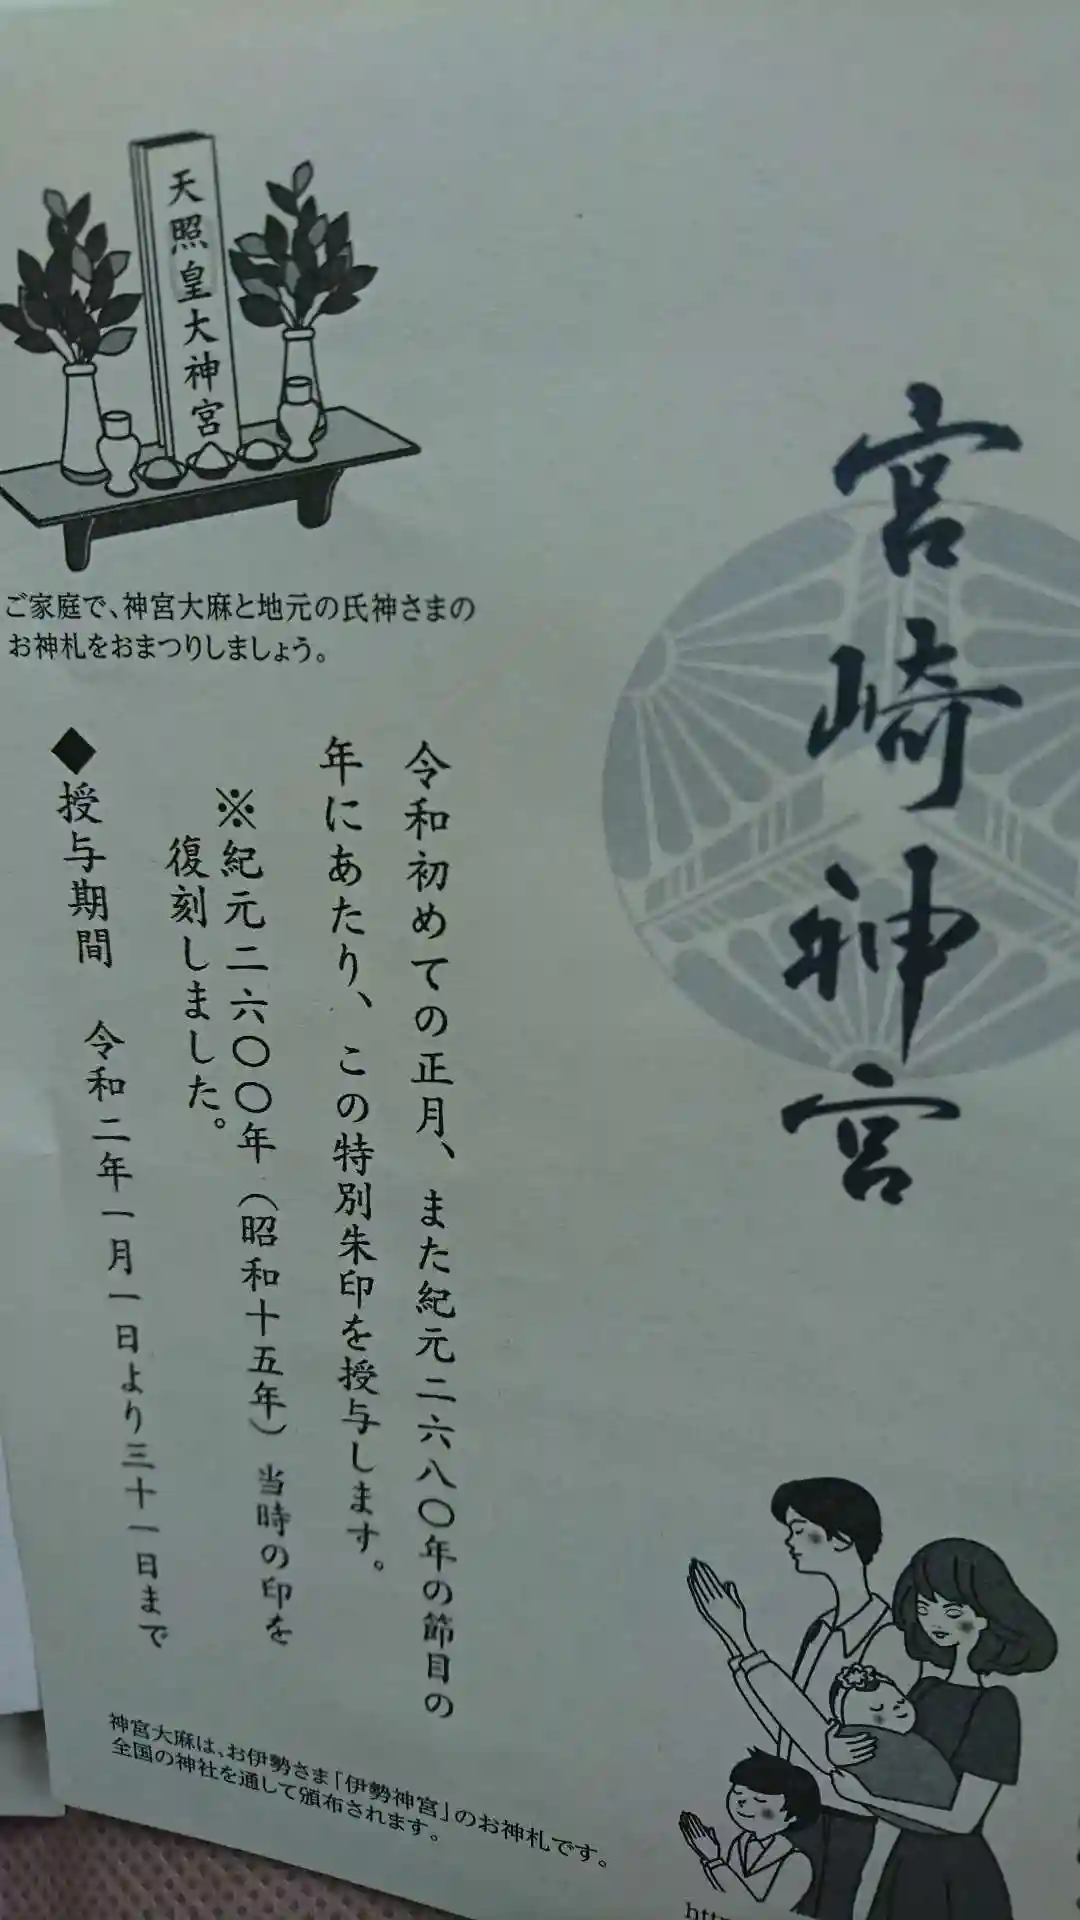 宮崎神宮
天照皇大神宮
ご家庭で、神宮大麻と地元の氏神さまの
お神札をおまつりしましょう。
令和初めての正月、また紀元二六八〇年の節目の
年にあたり、この特別朱印を授与します。
※紀元二六〇〇年（昭和十五年）当時の印を
復刻しました。
◆授与期間 令和二年一月一日より三十一日まで
神宮大麻は、お伊勢さま「伊勢神宮」のお神札です。
全国の神社を通して頒布されます。